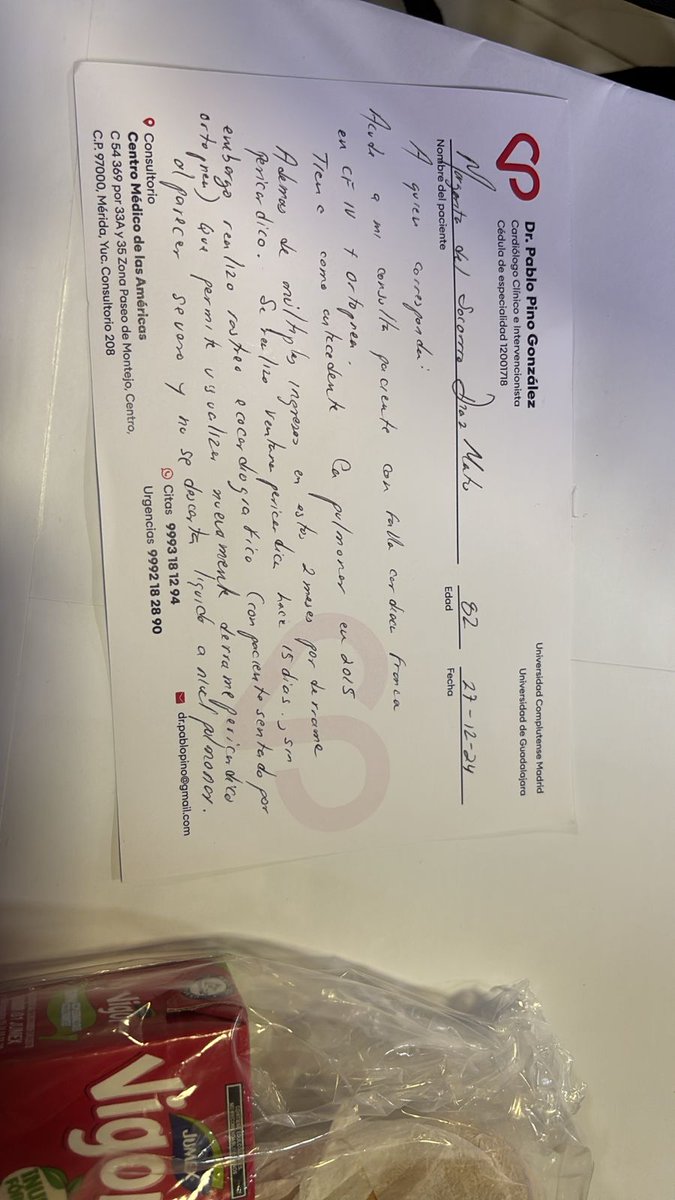 Dr. Pablo Pino González
Cardiólogo Clínico e Intervencionista
Cédula de especialidad 12001718
Universidad Complutense Madrid
Universidad de Guadalajara
Margarita del Socorro Díaz Mato 82 27-12-24
Nombre del paciente Edad Fecha
A quien corresponda:
Acude a mi consulta paciente con falla cardiaca franca
en CF IV + ortopnea.
Tiene como antecedente Ca pulmonar en 2015
Ademas de múltiples ingresos en estos 2 meses por derrame
pericardico. Se realizo ventana pericardica hace 15 dias., sin
embargo realizo rastreo ecocardiografico (con paciente sentado por
ortopnea) que permite visualizar nuevamente derrame pericardico
al parecer severo y no se descarta liquido a nivel pulmonar.
Consultorio
Centro Médico de las Américas
C 54 369 por 33A y 35 Zona Paseo de Montejo, Centro,
C.P. 97000, Mérida, Yuc. Consultorio 208
Citas 9993 18 12 94
Urgencias 9992 18 28 90
dr.pablopino@gmail.com
Vigor
JUMEX
Vigor